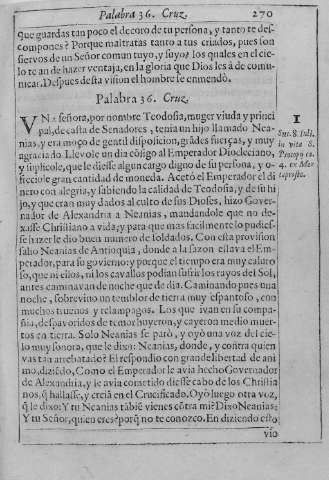 Palabra 36. Cruz. 270
Que guardas tan poco el decoro de tu persona, y tanto te des-
compones? Porque maltratas tanto a tus criados, pues son
siervos de un Señor comun tuyo, y suyo? los quales en el cie-
lo te an de hazer ventaja, en la gloria que Dios les à de comu-
nicar. Despues desta vision el hombre se enmendò.
Palabra 36. Cruz.
VNa señora, por nombre Teodosia, muger viuda y princi
pal, de casta de Senadores, tenia un hijo llamado Nea-
nias, y era moço de gentil disposicion, grādes fuerças, y muy
agraciado. Llevole un dia cōsigo al Emperador Diocleciano,
y suplicole, que le diesse algun cargo digno de su persona, y o-
frecióle gran cantidad de moneda. Acetó el Emperador el di
nero con alegria, y sabiendo la calidad de Teodosia, y de su hi
jo, y que eran muy dados al culto de sus Dioses, hizo Gover-
nador de Alexandria a Neanias, mandandole que no de-
xasse Christiano a vida; y para que mas facilmente lo pudies-
se hazer le dio buen numero de soldados. Con esta provision
salio Neanias de Antioquia, donde a la sazon estava el Em-
perador, para su govierno: y porque el tiempo era muy caluro
so, que ni ellos, ni los cavallos podian sufrir los rayos del Sol,
antes caminavan de noche que de dia. Caminando pues una
noche, sobrevino un temblor de tierra muy espantoso, con
muchos truenos y relampagos. Los que ivan en su compa-
ñia, despavoridos de temor huyeron, y cayeron medio muer-
tos en tierra. Solo Neanias se parò, y oyò una voz del cie-
lo muy sonora, que le dixo: Neanias, donde, y contra quien
vas tan arrebatado? El respondio con grande libertad de ani
mo, diziēdo, Como el Emperador le avia hecho Governador
de Alexandria, y le avia cometido diesse cabo de los Christia
nos, q̄ hallasse, y creiā en el Crucificado. Oyò luego otra voz,
q̄ le dixo: Y tu Neanias tābiē vienes cōtra mi? Dixo Neanias:
Y tu Señor, quien eres? porq̄ no te conozco. En diziendo esto
vio
I
Sur. 8. Iuli.
in vita S.
Procopij ca.
4. ex Me-
taphraste.